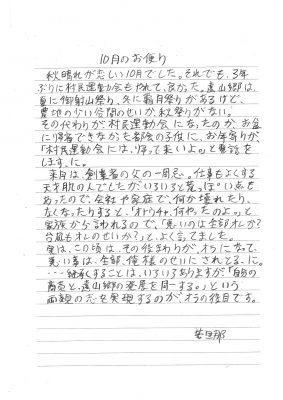 10月のお便り
秋晴れが恋しい10月でした。それでも、3年
ぶりに村民運動会もやれて、良かった。遠山郷は、
夏に御射山祭り、冬に霜月祭りがあるけど、
農地の少い谷間のせいか、秋祭りがない。
その代わりが村民運動会になったのか、お盆
に帰省できなかった都会の子供に、お年寄りが
「村民運動会には、帰って来いよ。」と電話を
します、に。
来月は、創業者の父の一周忌。仕事もよくする
天才肌の人でしたが、いろいろと荒っぽい点も
あったので、会社や家庭で、何か壊れたり、
なくなったりすると、「オトリャ、何やったのよ。」と
家族から言われるので、「悪いのは全部オレか?
台風もオレのせいか?」と、よく言ってました。
実は、この頃は、その役まわりが、オラになって、
悪い事は、全部、俺様のせいにされとる、に。
…継承くすることは、いろいろありますが、「自分の
商売と、遠山郷の発展を同一する。」という
両親の志を実現するのが、オラの役目です。
若旦那